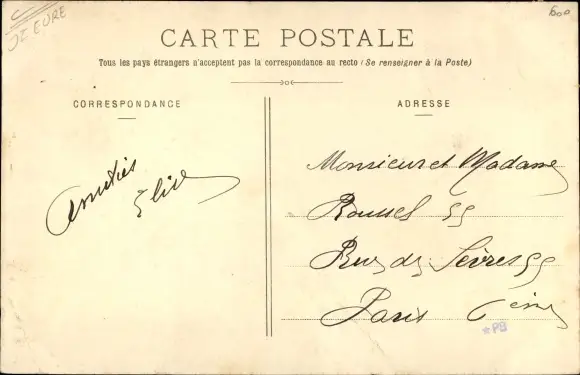 27 EURE
600
CARTE POSTALE
Tous les pays étrangers n'acceptent pas la correspondance au recto (Se renseigner à la Poste)
CORRESPONDANCE
Amitiés
Elise
ADRESSE
Monsieur et Madame
Roussel 55
Rue de Sèvres 55
Paris 6ème
*PB